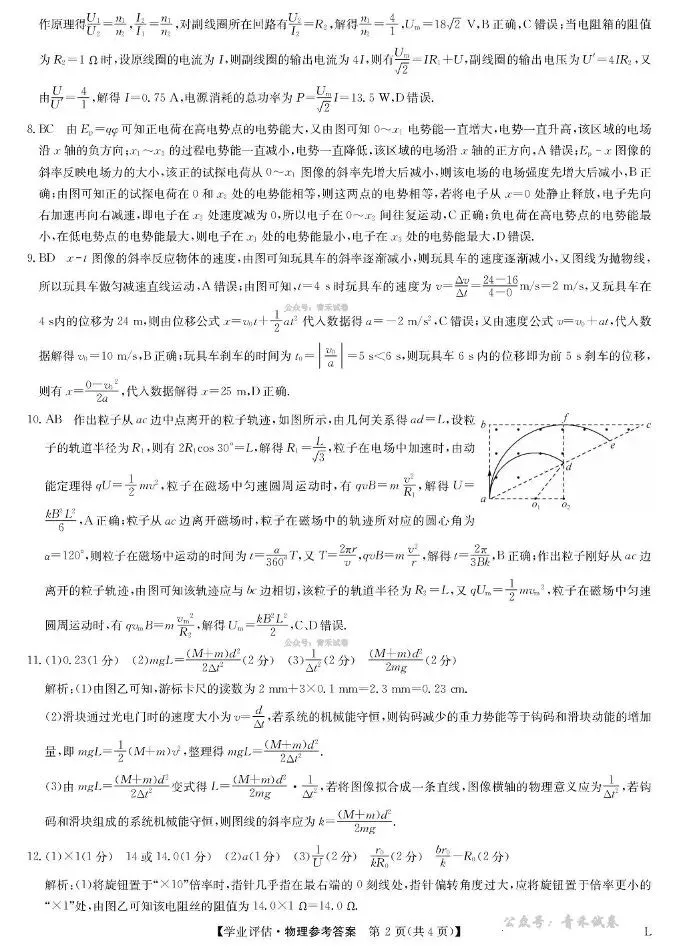 作原理得U₁/U₂=n₁/n₂,I₂/I₁=n₁/n₂,对副线圈所在回路有U₂/I₂=R₂,解得n₁/n₂=4/1,Uₘ=18√2 V,B正确,C错误;当电阻箱的阻值
为R₂=1 Ω时,设原线圈的电流为I,则副线圈的输出电流为4I,则有Uₘ/√2=IR₁+U,副线圈的输出电压为U′=4IR₂,又
由U/U′=4/1,解得I=0.75 A,电源消耗的总功率为P=Uₘ/√2 I=13.5 W,D错误.
8. BC 由Eₚ=qφ可知正电荷在高电势点的电势能大,又由图可知0~x₁电势能一直增大,电势一直升高,该区域的电场
沿x轴的负方向;x₁~x₃的过程电势能一直减小,电势一直降低,该区域的电场沿x轴的正方向,A错误;Eₚ-x图像的
斜率反映电场力的大小,该正的试探电荷从0~x₁图像的斜率先增大后减小,则该电场的电场强度先增大后减小,B正
确;由图可知正的试探电荷在0和x₂处的电势能相等,则这两点的电势相等,若将电子从x=0处静止释放,电子先向
右加速再向右减速,即电子在x₂处速度减为0,所以电子在0~x₂间往复运动,C正确;负电荷在高电势点的电势能最
小,在低电势点的电势能最大,则电子在x₁处的电势能最小,电子在x₃处的电势能最大,D错误.
9. BD x-t图像的斜率反应物体的速度,由图可知玩具车的斜率逐渐减小,则玩具车的速度逐渐减小,又图线为抛物线,
所以玩具车做匀减速直线运动,A错误;由图可知,t=4 s时玩具车的速度为v=Δv/Δt=(24-16)/(4-0) m/s=2 m/s,又玩具车在
公众号:青禾试卷
4 s内的位移为24 m,则由位移公式x=v₀t+1/2 at²代入数据得a=-2 m/s²,C错误;又由速度公式v=v₀+at,代入数
据解得v₀=10 m/s,B正确;玩具车刹车的时间为t₀=|v₀/a|=5 s<6 s,则玩具车6 s内的位移即为前5 s刹车的位移,
则有x=(0-v₀²)/2a,代入数据解得x=25 m,D正确.
10. AB 作出粒子从ac边中点离开的粒子轨迹,如图所示,由几何关系得ad=L,设粒
子的轨道半径为R₁,则有2R₁cos 30°=L,解得R₁=L/√3,粒子在电场中加速时,由动
能定理得qU=1/2 mv²,粒子在磁场中匀速圆周运动时,有qvB=m v²/R₁,解得U=
kB²L²/6,A正确;粒子从ac边离开磁场时,粒子在磁场中的轨迹所对应的圆心角为
b f c
e
d
a o₁ o₂
α=120°,则粒子在磁场中运动的时间为t=α/360° T,又T=2πr/v,qvB=m v²/r,解得t=2π/3Bk,B正确;作出粒子刚好从ac边
离开的粒子轨迹,由图可知该轨迹应与bc边相切,该粒子的轨道半径为R₂=L,又qUₘ=1/2 mvₘ²,粒子在磁场中匀速
圆周运动时,有qvₘB=m vₘ²/R₂,解得Uₘ=kB²L²/2,C、D错误.
公众号:青禾试卷
11. (1)0.23(1分) (2)mgL=(M+m)d²/2Δt²(2分) (3)1/Δt²(2分) (M+m)d²/2mg(2分)
解析:(1)由图乙可知,游标卡尺的读数为2 mm+3×0.1 mm=2.3 mm=0.23 cm.
(2)滑块通过光电门时的速度大小为v=d/Δt,若系统的机械能守恒,则钩码减少的重力势能等于钩码和滑块动能的增加
量,即mgL=1/2(M+m)v²,整理得mgL=(M+m)d²/2Δt².
(3)由mgL=(M+m)d²/2Δt²变式得L=(M+m)d²/2mg·1/Δt²,若将图像拟合成一条直线,图像横轴的物理意义应为1/Δt²,若钩
码和滑块组成的系统机械能守恒,则图线的斜率应为k=(M+m)d²/2mg.
12. (1)×1(1分) 14或14.0(1分) (2)a(1分) (3)1/U(2分) r₀/kR₀(2分) br₀/k-R₀(2分)
解析:(1)将旋钮置于“×10”倍率时,指针几乎指在最右端的0刻线处,指针偏转角度过大,应将旋钮置于倍率更小的
“×1”处,由图乙可知该电阻丝的阻值为14.0×1 Ω=14.0 Ω.
【学业评估·物理参考答案 第2页(共4页)】 L
公众号:青禾试卷